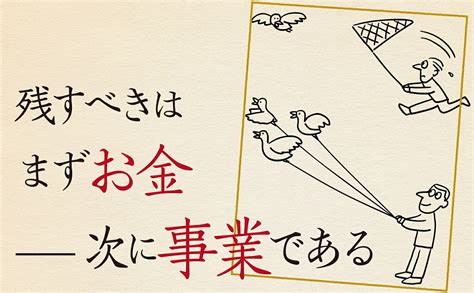 残すべきは
まずお金
──次に事業である